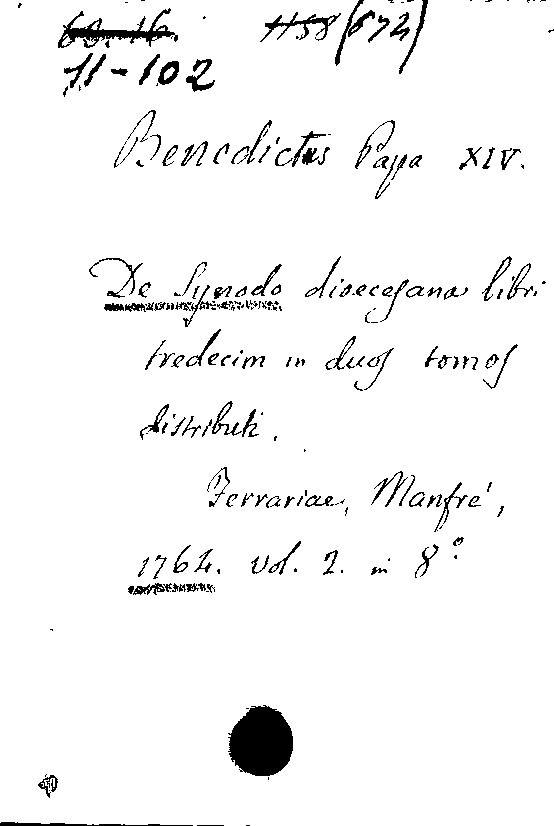 60.16. 1158 (672)
11-102
Benedictus Papa XIV.
De Synodo dioecesana libri
tredecim in duos tomos
distributi.
Ferrariae, Manfré,
1764. vol. 2. in 8°